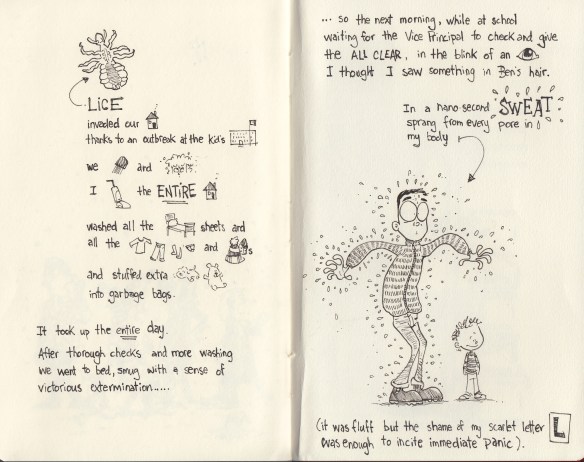 LICE
invaded our
thanks to an outbreak at the kid's
we and
I the ENTIRE
washed all the sheets and
all the and s
and stuffed extra
into garbage bags.
It took up the entire day.
After thorough checks and more washing
we went to bed, smug with a sense of
victorious extermination.....
... so the next morning, while at school
waiting for the Vice Principal to check and give
the ALL CLEAR, in the blink of an
I thought I saw something in Ben's hair.
In a nano-second SWEAT
sprang from every pore in
my body
(it was fluff but the shame of my scarlet letter L
was enough to incite immediate panic).